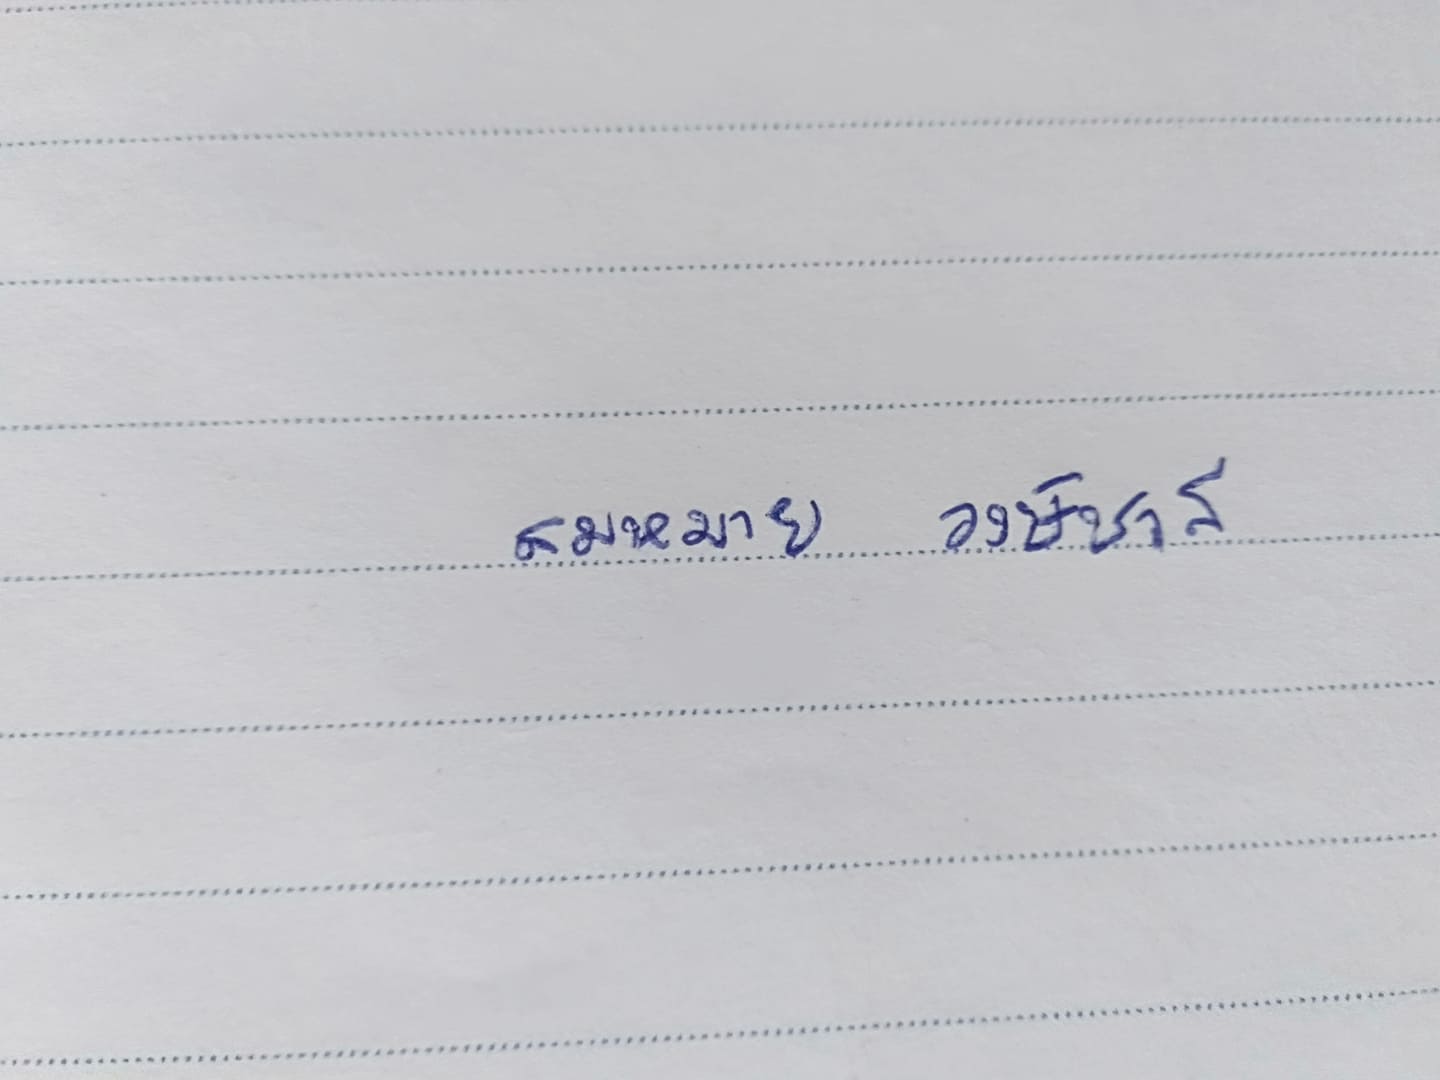 สมหมาย วงษ์ชาลี